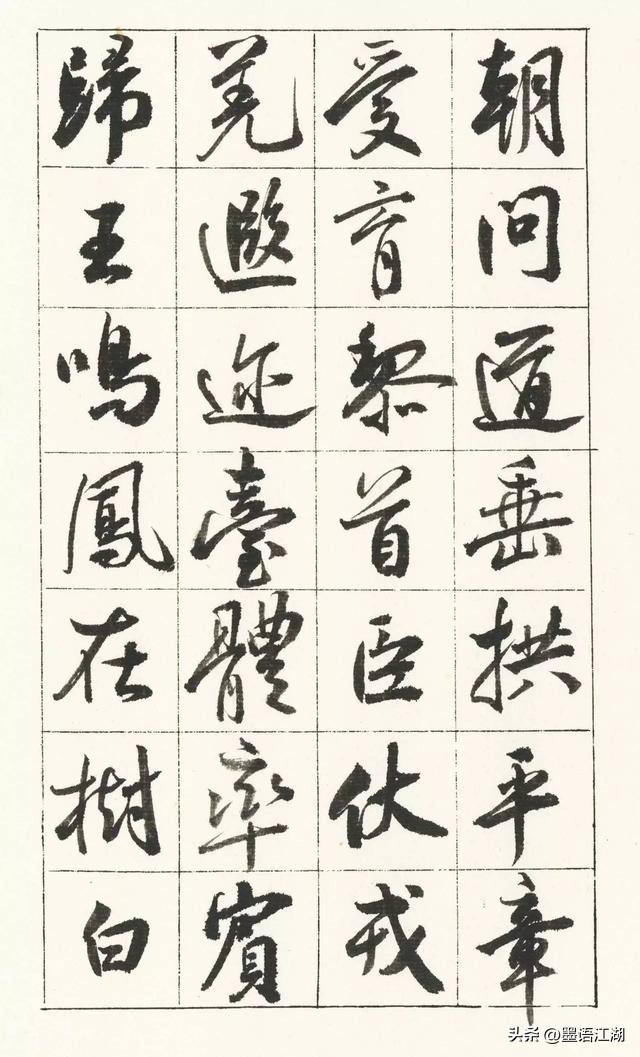 朝問道垂拱平章
愛育黎首臣伏戎
羌遐迩壹體率賓
歸王鳴鳳在樹白
头条 @墨语江湖